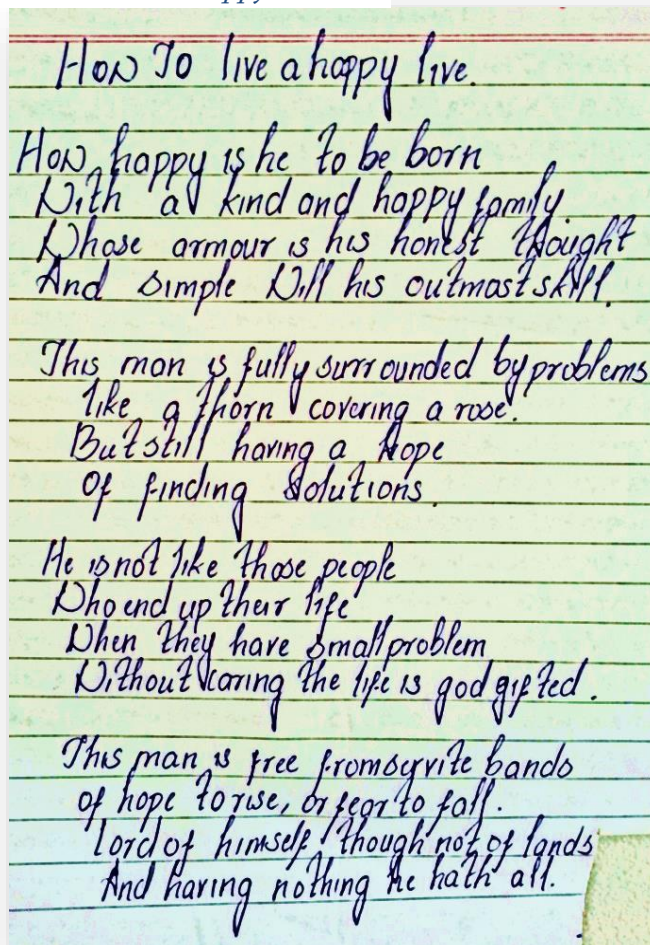 How To live a happy live.
How happy is he to be born
With a kind and happy family.
Whose armour is his honest thought
And simple Will his outmost skill.
This man is fully surrounded by problems
like a thorn covering a rose.
But still having a hope
Of finding solutions.
He is not like those people
Who end up their life
When they have small problem
Without caring the life is god gifted.
This man is free from servite bands
of hope to rise, or fear to fall.
lord of himself, though not of lands
And having nothing he hath all.